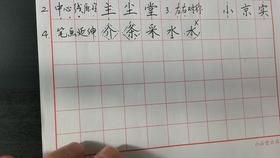 2. 中心线原则 主 尘 堂 3. 左右对称 小 京 实
4. 笔画延伸 介 条 采 水 水